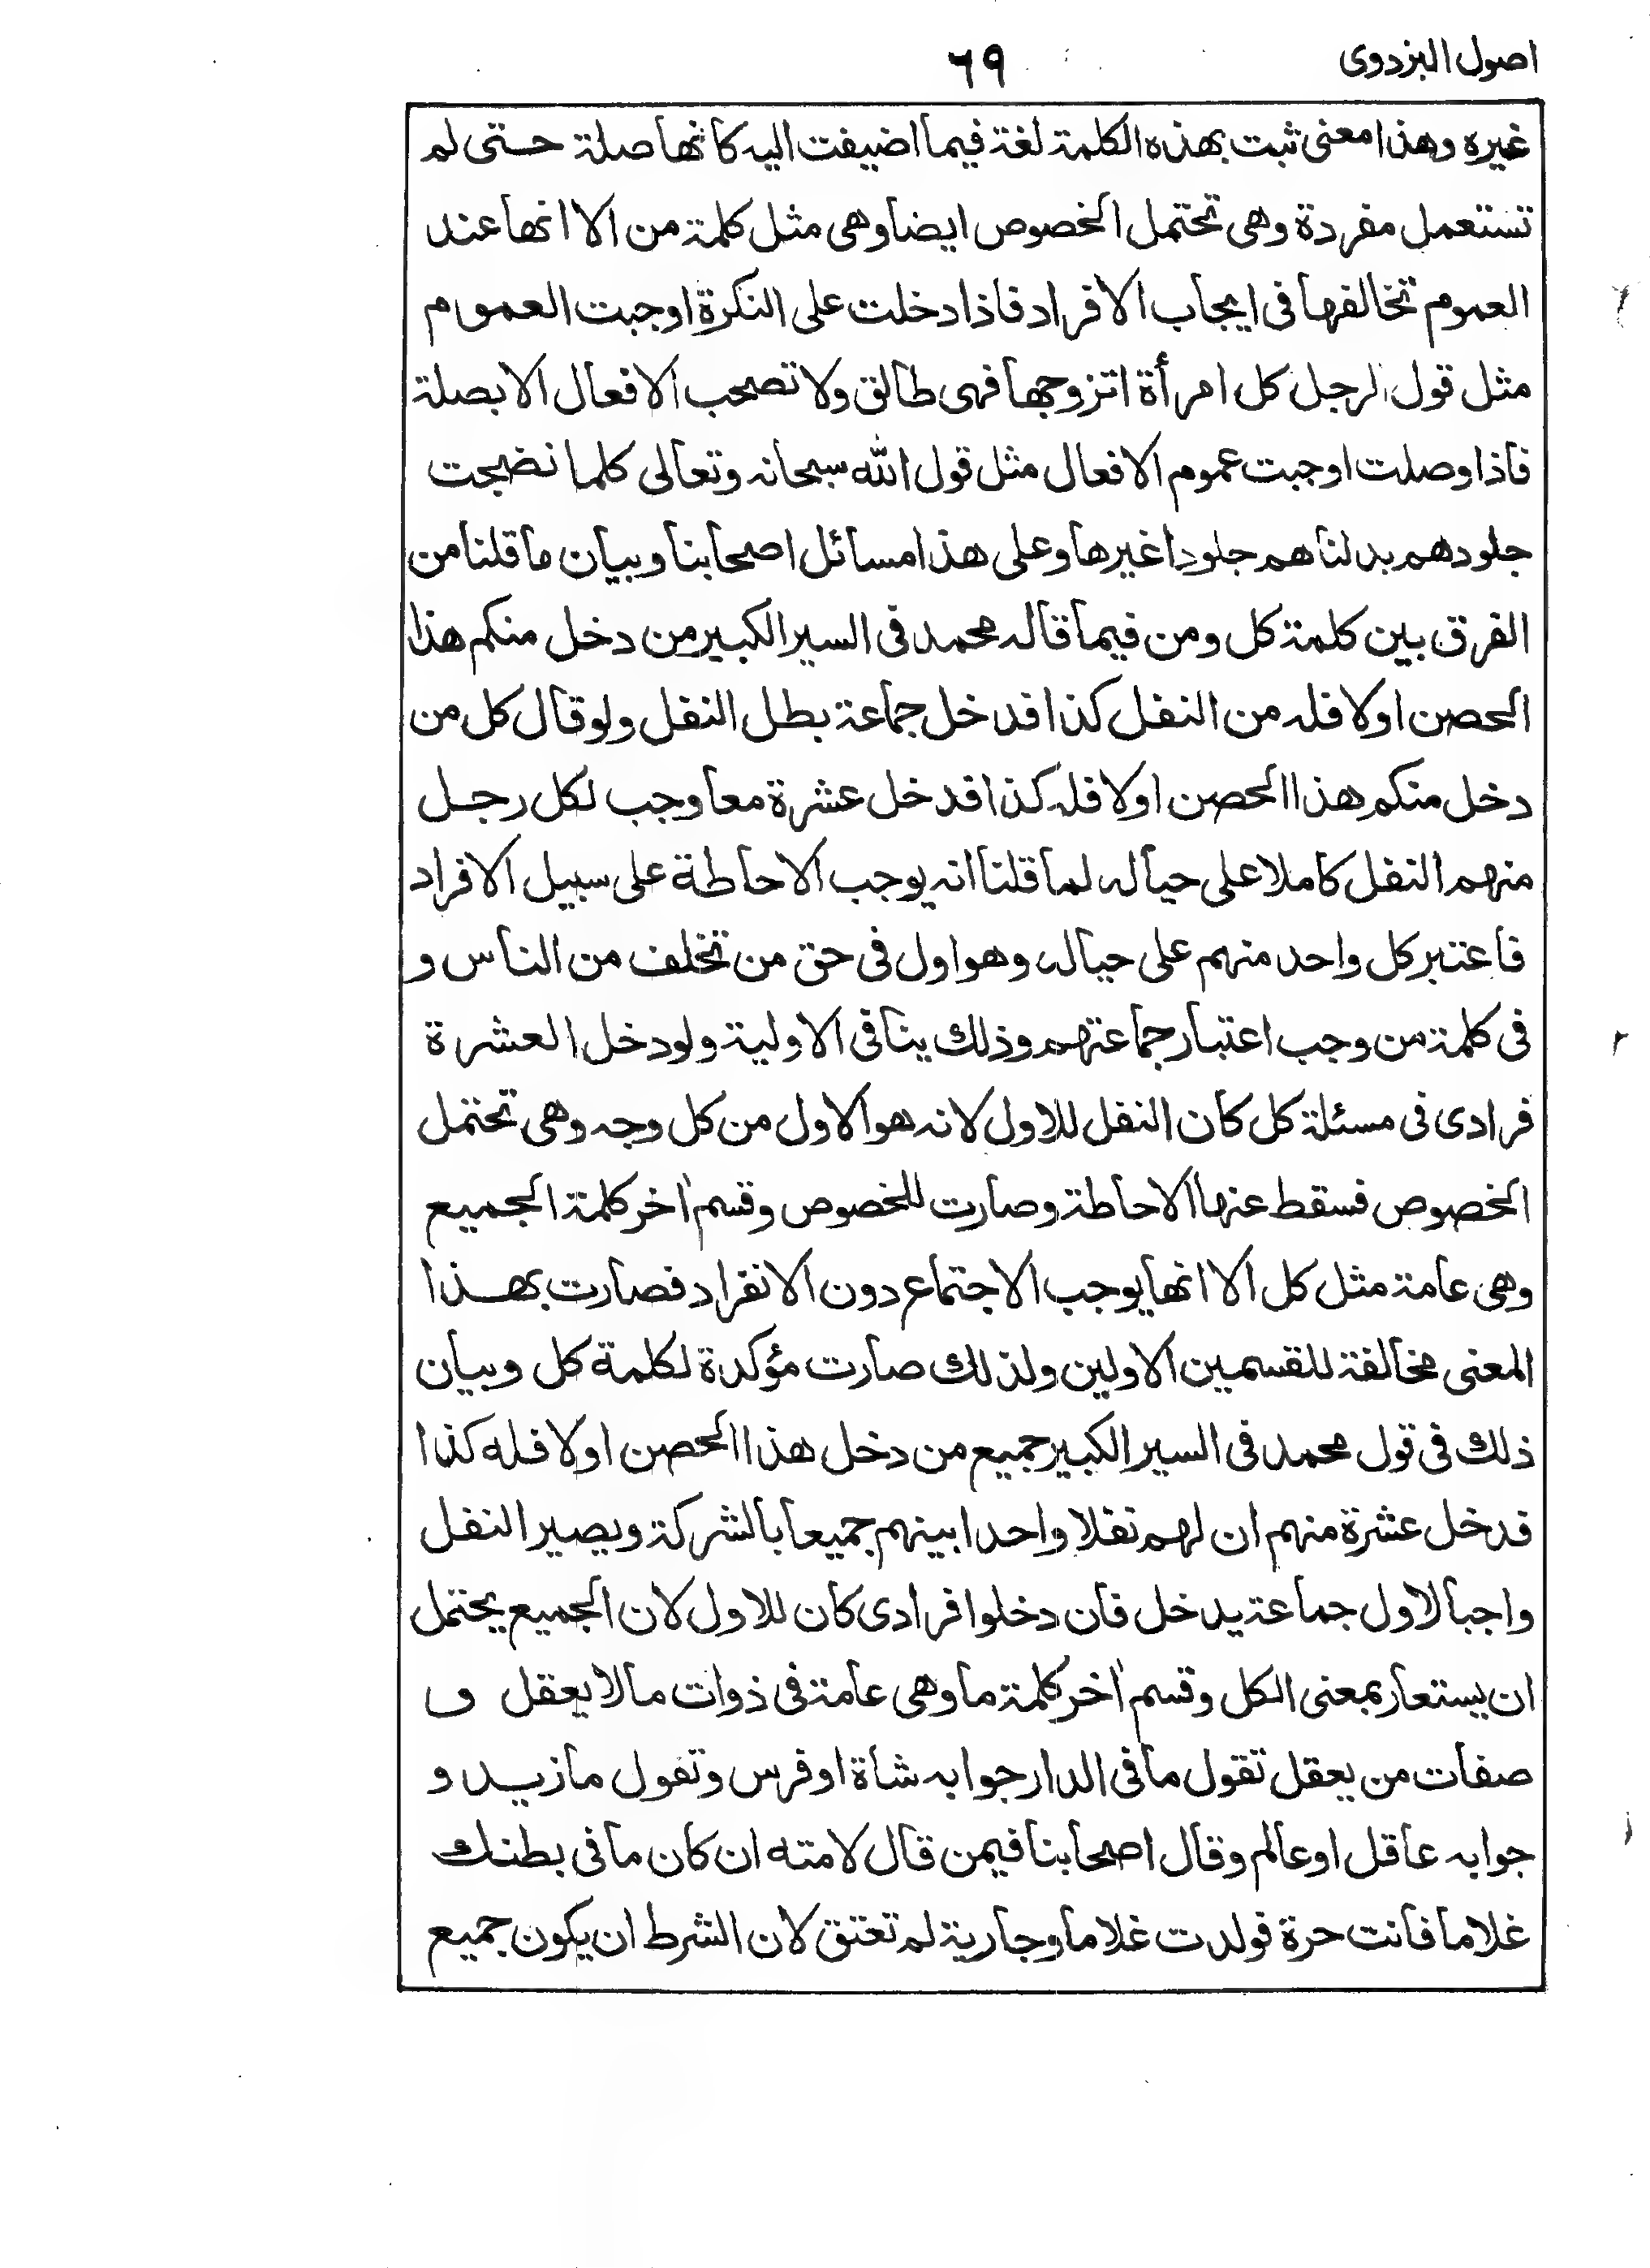 اصول البزدوى
٦٩
غيره وهذا معنى ثبت بهذه الكلمة لغة فيما اضيفت اليه كانها صلة حتى لم
تستعمل مفردة وهى تحتمل الخصوص ايضا وهى مثل كلمة من الا انها عند
العموم تخالفها فى ايجاب الافراد فاذا دخلت على النكرة اوجبت العموم
مثل قول الرجل كل امرأة اتزوجها فهى طالق ولا تصحب الافعال الا بصلة
فاذا وصلت اوجبت عموم الافعال مثل قول الله سبحانه وتعالى كلما نضجت
جلودهم بدلناهم جلودا غيرها وعلى هذا مسائل اصحابنا وبيان ما قلنا من
الفرق بين كلمة كل ومن فيما قاله محمد فى السير الكبير من دخل منكم هذا
الحصن اولا فله من النفل كذا فدخل جماعة بطل النفل ولو قال كل من
دخل منكم هذا الحصن اولا فله كذا فدخل عشرة معا وجب لكل رجل
منهم النفل كاملا على حياله لما قلنا انه يوجب الاحاطة على سبيل الافراد
فاعتبر كل واحد منهم على حياله وهو اول فى حق من تخلف من الناس و
فى كلمة من وجب اعتبار جماعتهم وذلك ينافى الاولية ولو دخل العشرة
فرادى فى مسئلة كل كان النفل للاول لانه هو الاول من كل وجه وهى تحتمل
الخصوص فسقط عنها الاحاطة وصارت للخصوص وقسم اٰخر كلمة الجميع
وهى عامة مثل كل الا انها يوجب الاجتماع دون الانفراد فصارت بهذا
المعنى مخالفة للقسمين الاولين ولذلك صارت مؤكدة لكلمة كل وبيان
ذلك فى قول محمد فى السير الكبير جميع من دخل هذا الحصن اولا فله كذا
فدخل عشرة منهم ان لهم نفلا واحدا بينهم جميعا بالشركة ويصير النفل
واجبا لاول جماعة يدخل فان دخلوا فرادى كان للاول لان الجميع يحتمل
ان يستعار بمعنى الكل وقسم اٰخر كلمة ما وهى عامة فى ذوات ما لا يعقل و
صفات من يعقل تقول ما فى الدار جوابه شاة او فرس وتقول ما زيد و
جوابه عاقل او عالم وقال اصحابنا فيمن قال لامته ان كان ما فى بطنك
غلاما فانت حرة فولدت غلاما وجارية لم تعتق لان الشرط ان يكون جميع